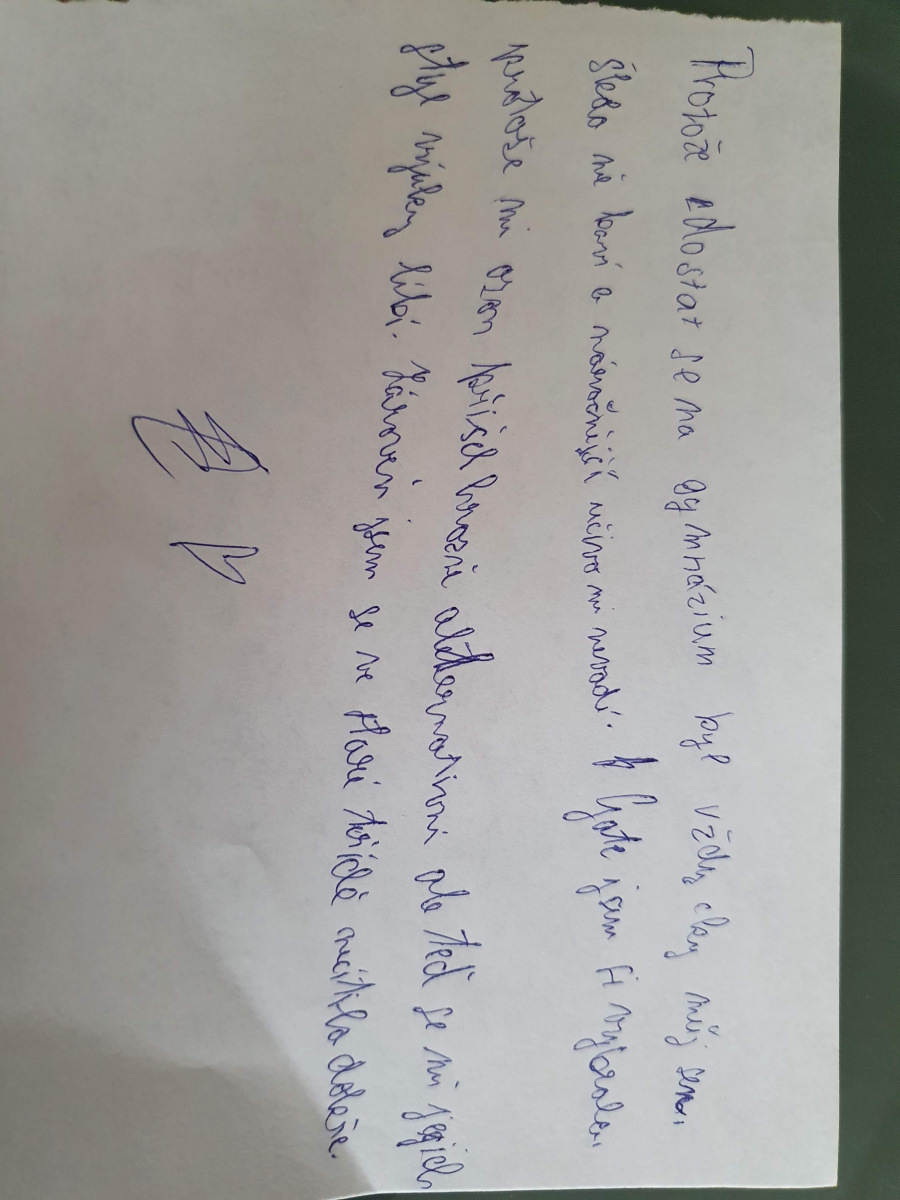 Protože dostat se na gymnázium byl vždycky můj sen,
škola mě baví a náročnější učivo mi nevadí. Gate jsem si vybrala,
protože mi ozon přišel hrozně alternativní ale teď se mi jejich
styl výuky líbí. Zároveň jsem se ve staré třídě necítila dobře.